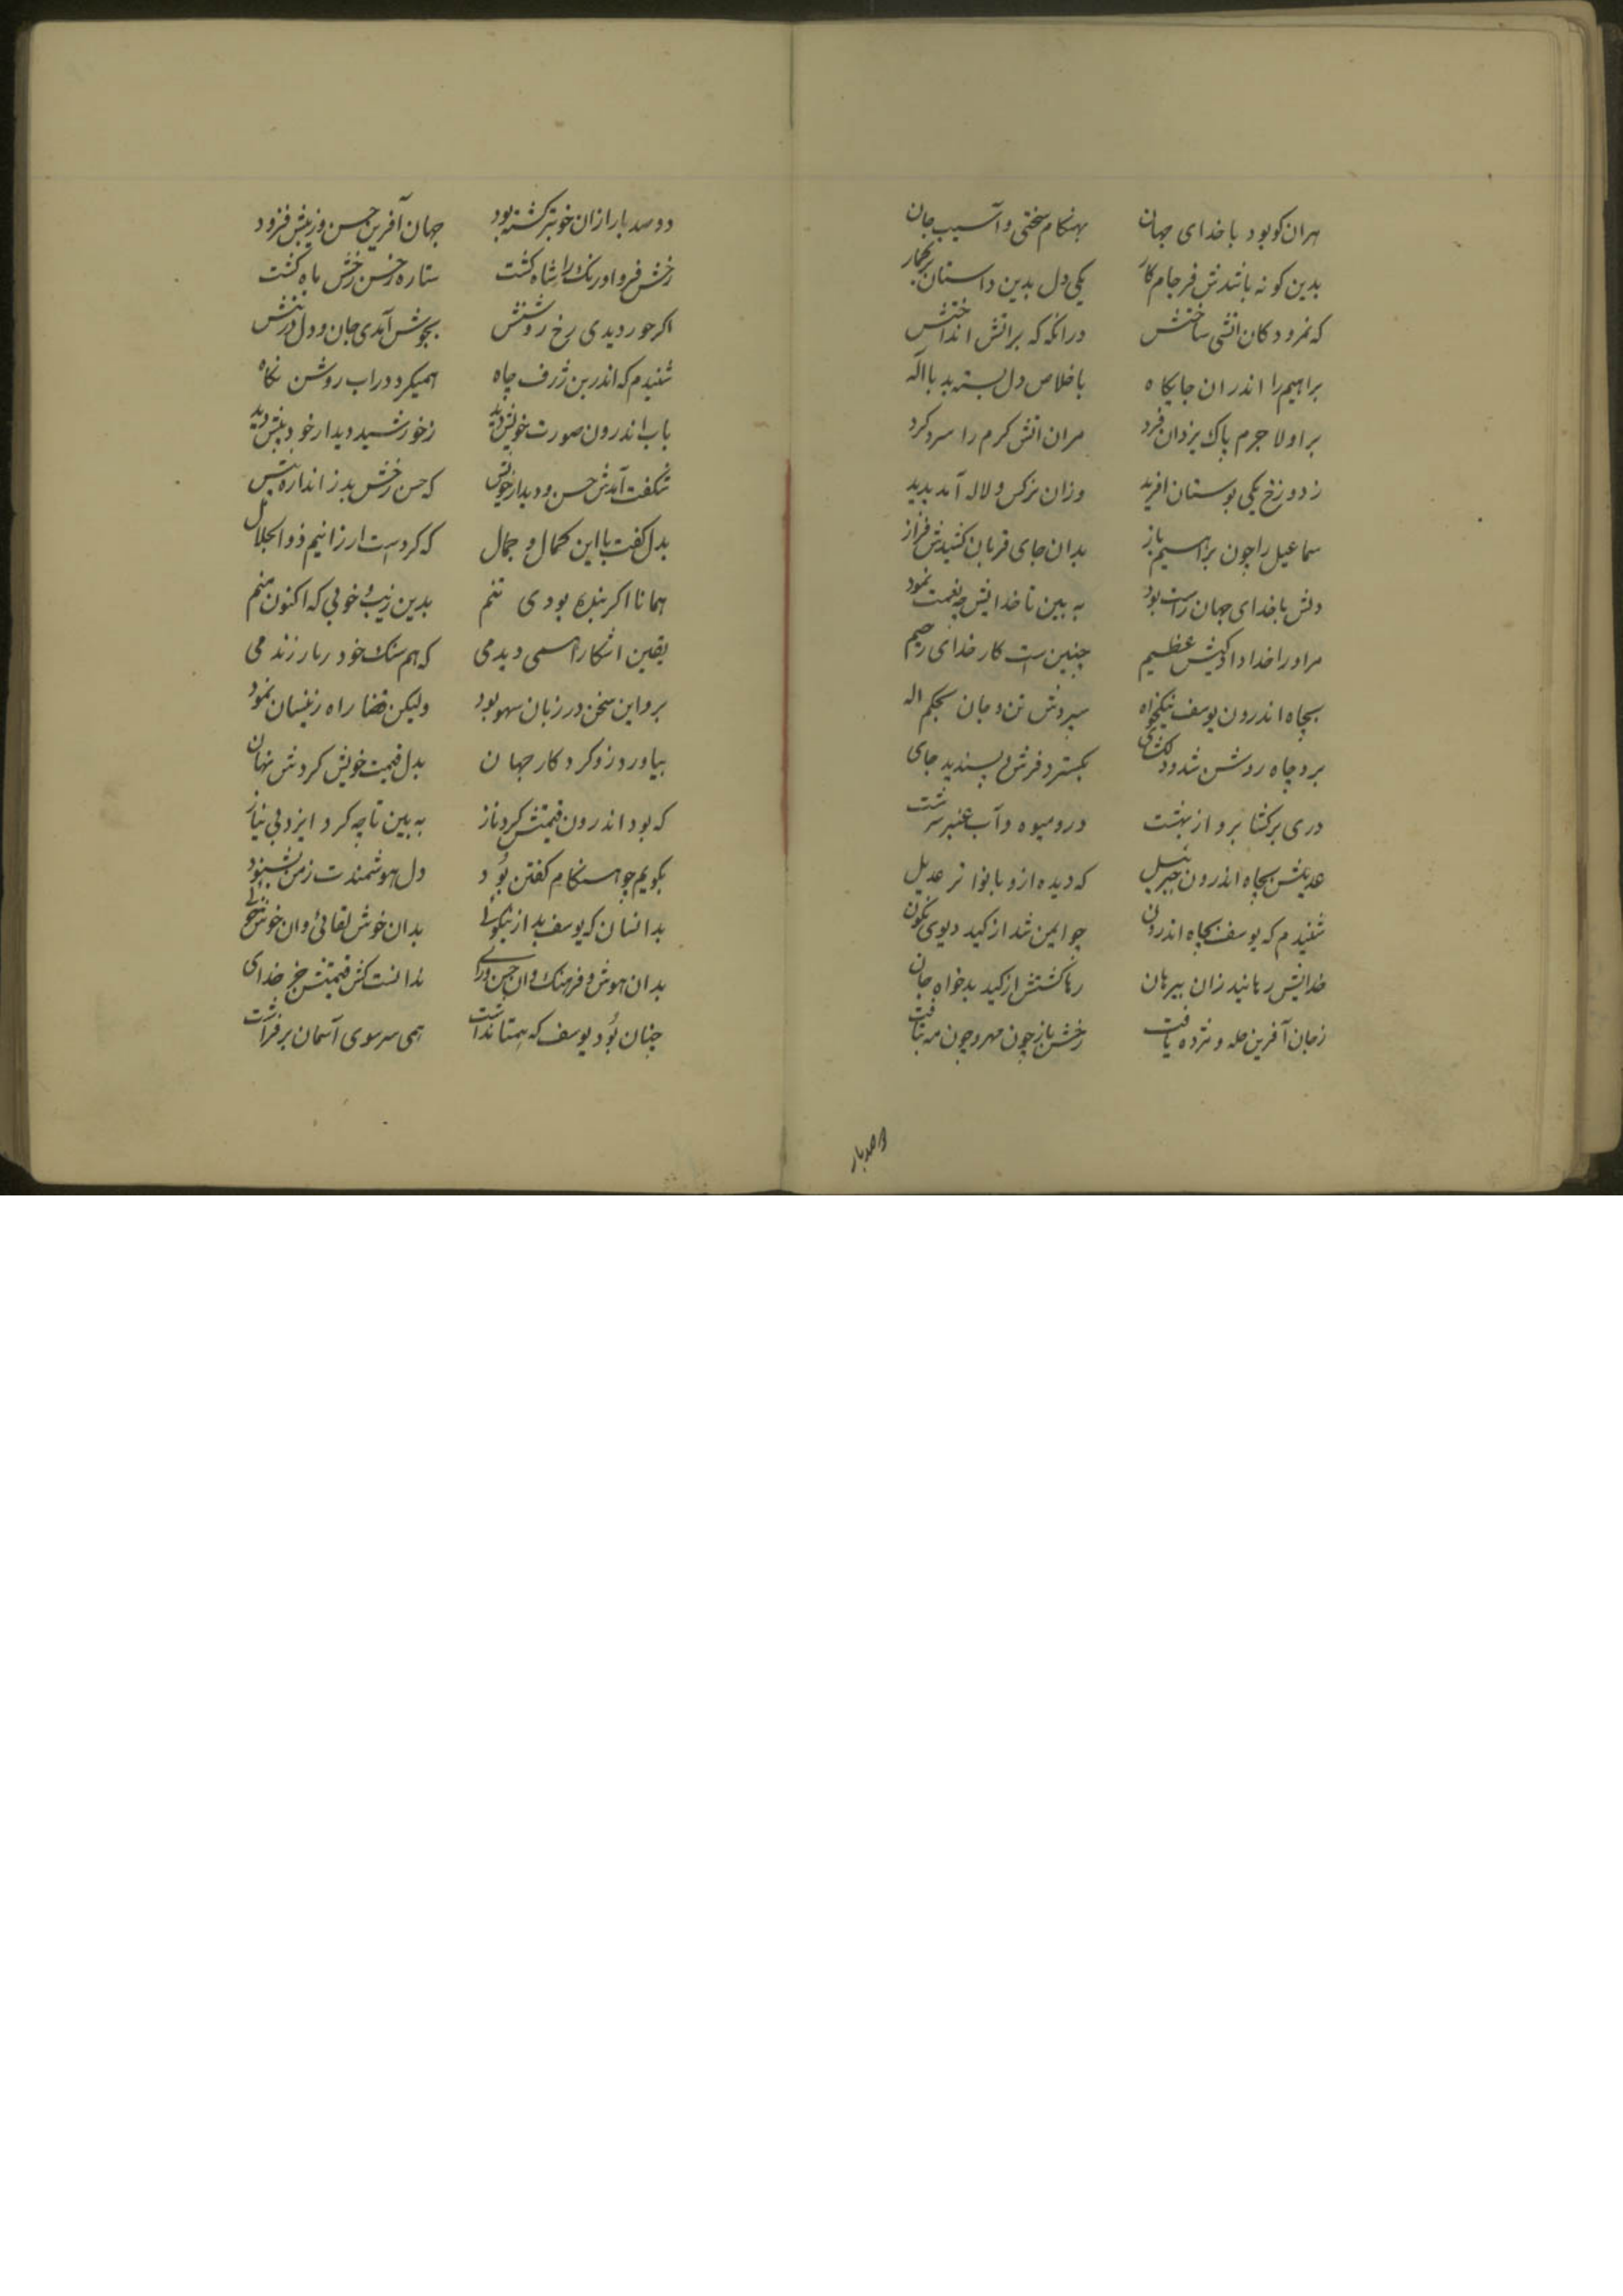 هران کو بود با خدای جهان بهنکام سختی و آسیب جان
بدین کونه باشدش فرجام کار یکی دل بدین داستان برکمار
که نمرود کان اتشی ساختش درانکه که براتش انداختش
براهیم را اندران جایکاه باخلاص دل بسته بد با اله
براو لاجرم پاک یزدان فرد مران اتش کرم را سرد کرد
ز دوزخ یکی بوستان افرید وزان نرکس و لاله آمد پدید
سماعیل را چون براهیم باز بدان جای قربان کشیدش فراز
دلش با خدای جهان راست بود به بین تا خدایش چه نعمت نمود
مراورا خدا داد کیش عظیم چنین است کار خدای رحیم
بچاه اندرون یوسف نیکخواه سپردش تن و جان بحکم اله
برو چاه روشن شد و دلکشای بکسترد فرش پسندیده جای
دری برکشا برو از بهشت درو میوه و آب عنبر سرشت
عدیلش بچاه اندرون جبرئیل که دیده ازو بانواتر عدیل
شنیدم که یوسف بچاه اندرون چو ایمن شد از کید دیوی نکون
خدایش رهانید زان بیرهان رها کشتش از کید بدخواه جان
ز جان آفرین حله و نزده یافت رخش باز چون مهر و چون مه بتافت
دو صد بار
دو صد بار ازان خوبتر کشته بود جهان آفرین حسن و زیبش فزود
رخش فر و اورنک را شاه کشت ستاره ز حسن رخش ماه کشت
اکر حور دیدی رخ روشنش بجوش آمدی جان و دل در تنش
شنیدم که اندر بن ژرف چاه همیکرد در اب روشن نکاه
باب اندرون صورت خویش دید ز خورشید دیدار خود بیش دید
شکفت آمدش حسن و دیدار خویش که حسن رخش بد ز اندازه بیش
بدل کفت با این کمال و جمال که کردست ارزانیم ذوالجلال
همانا اکر بنده بودی تنم بدین زیب و خوبی که اکنون منم
یقین اشکارا همی دیدمی که هم سنک خود زر بارزیدمی
برو این سخن در زبان سهو بود ولیکن قضا راه زینسان نمود
بیاورد زو کردکار جهان بدل قیمت خویش کردش نهان
که بود اندرون قیمتش کرد ناز به بین تا چه کرد ایزد بی نیاز
بکویم چو هنکام کفتن بود دل هوشمندت ز من بشنود
بدانسان که یوسف بد از نیکوئی بدان خوش لقائی و ان خوشخوئی
بدان هوش و فرهنک و ان حسن و رای ندانست کس قیمتش جز خدای
چنان بود یوسف که همتا نداشت همی سر سوی آسمان برفراشت